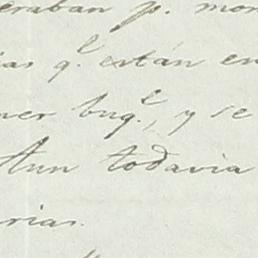 eraban p. mor
ias q.e están en
ner buq.e, y se
Aun todavia
rias.